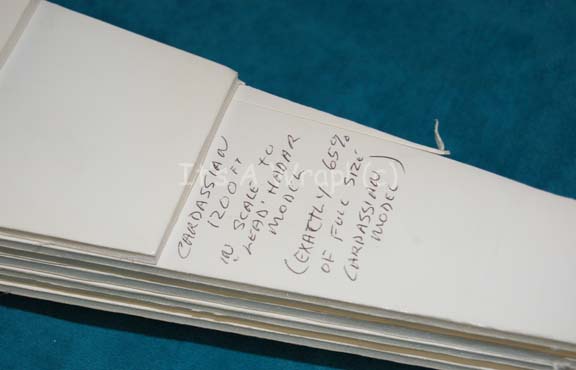 CARDASSIAN
1200 FT
IN SCALE TO
"LEAD" HADAR
MODEL
(EXACTLY 65%
OF FULL SIZE
CARDASSIAN)
MODEL
Its A Wrap!(c)